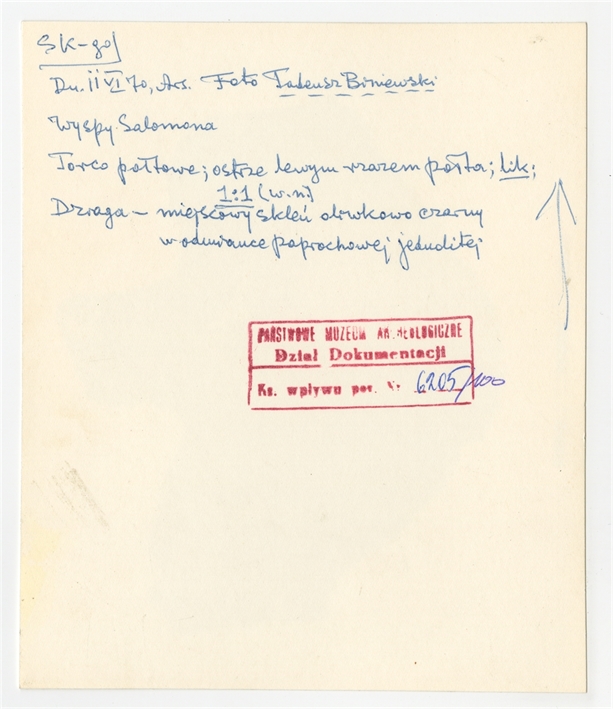 SK-go
Dn. 11 VI 70, Ars. Foto Tadeusz Biniewski
Wyspy Salomona
połtowe; ostrze lewym wrazem połta; lik;
1:1 (w.n.)
Dzraga – miejscowy skleń czarny
w odmiance paprochowej jednolitej
PAŃSTWOWE MUZEUM AR.HEOLOGICZNE
Dział Dokumentacji
Ks. wpływu poz. Nr 6205/100